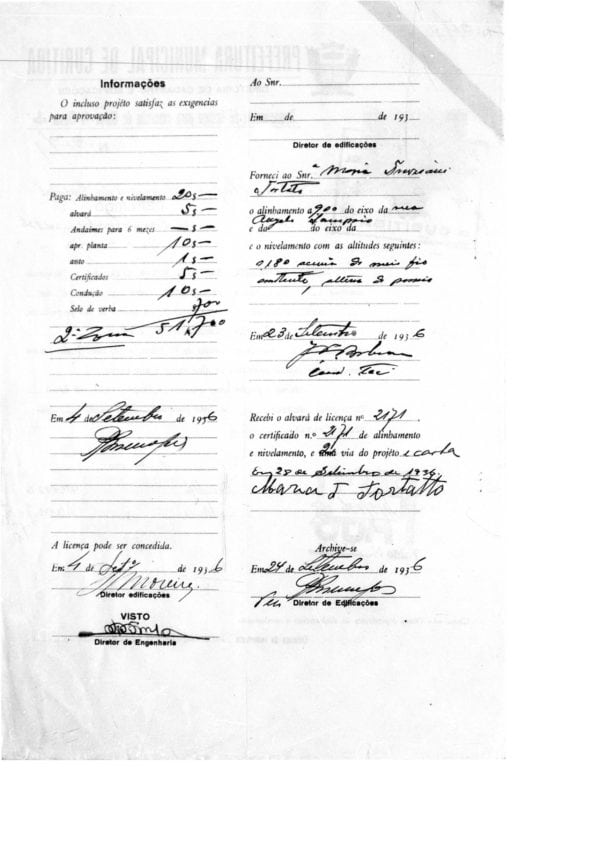 Informações
O incluso projéto satisfaz as exigencias
para aprovação:
Paga: Alinhamento e nivelamento 20$—
alvará 5$—
Andaimes para 6 mezes —$—
apr. planta 10$—
auto 1$—
Certificados 5$—
Condução 10$—
Selo de verba $700
2ª Zona 51$700
Em 4 de Setembro de 1936
A licença pode ser concedida.
Em 4 de Setº de 1936
Moreira
Diretor edificações
VISTO
Diretor de Engenharia
Ao Snr.
Em de de 193
Diretor de edificações
Forneci ao Snr.ª Maria
Tortato
o alinhamento a 900 do eixo da rua
Angelo Sampaio
e da do eixo da
e o nivelamento com as altitudes seguintes:
0,180 acima do meio fio
Em 23 de Setembro de 1936
Recebi o alvará de licença nº 2171
o certificado n.º 2171 de alinhamento
e nivelamento, e 2ª via do projéto e carta
Em 28 de Setembro de 1936
Maria T Tortatto
Archive-se
Em 24 de Setembro de 1936
Diretor de Edificações